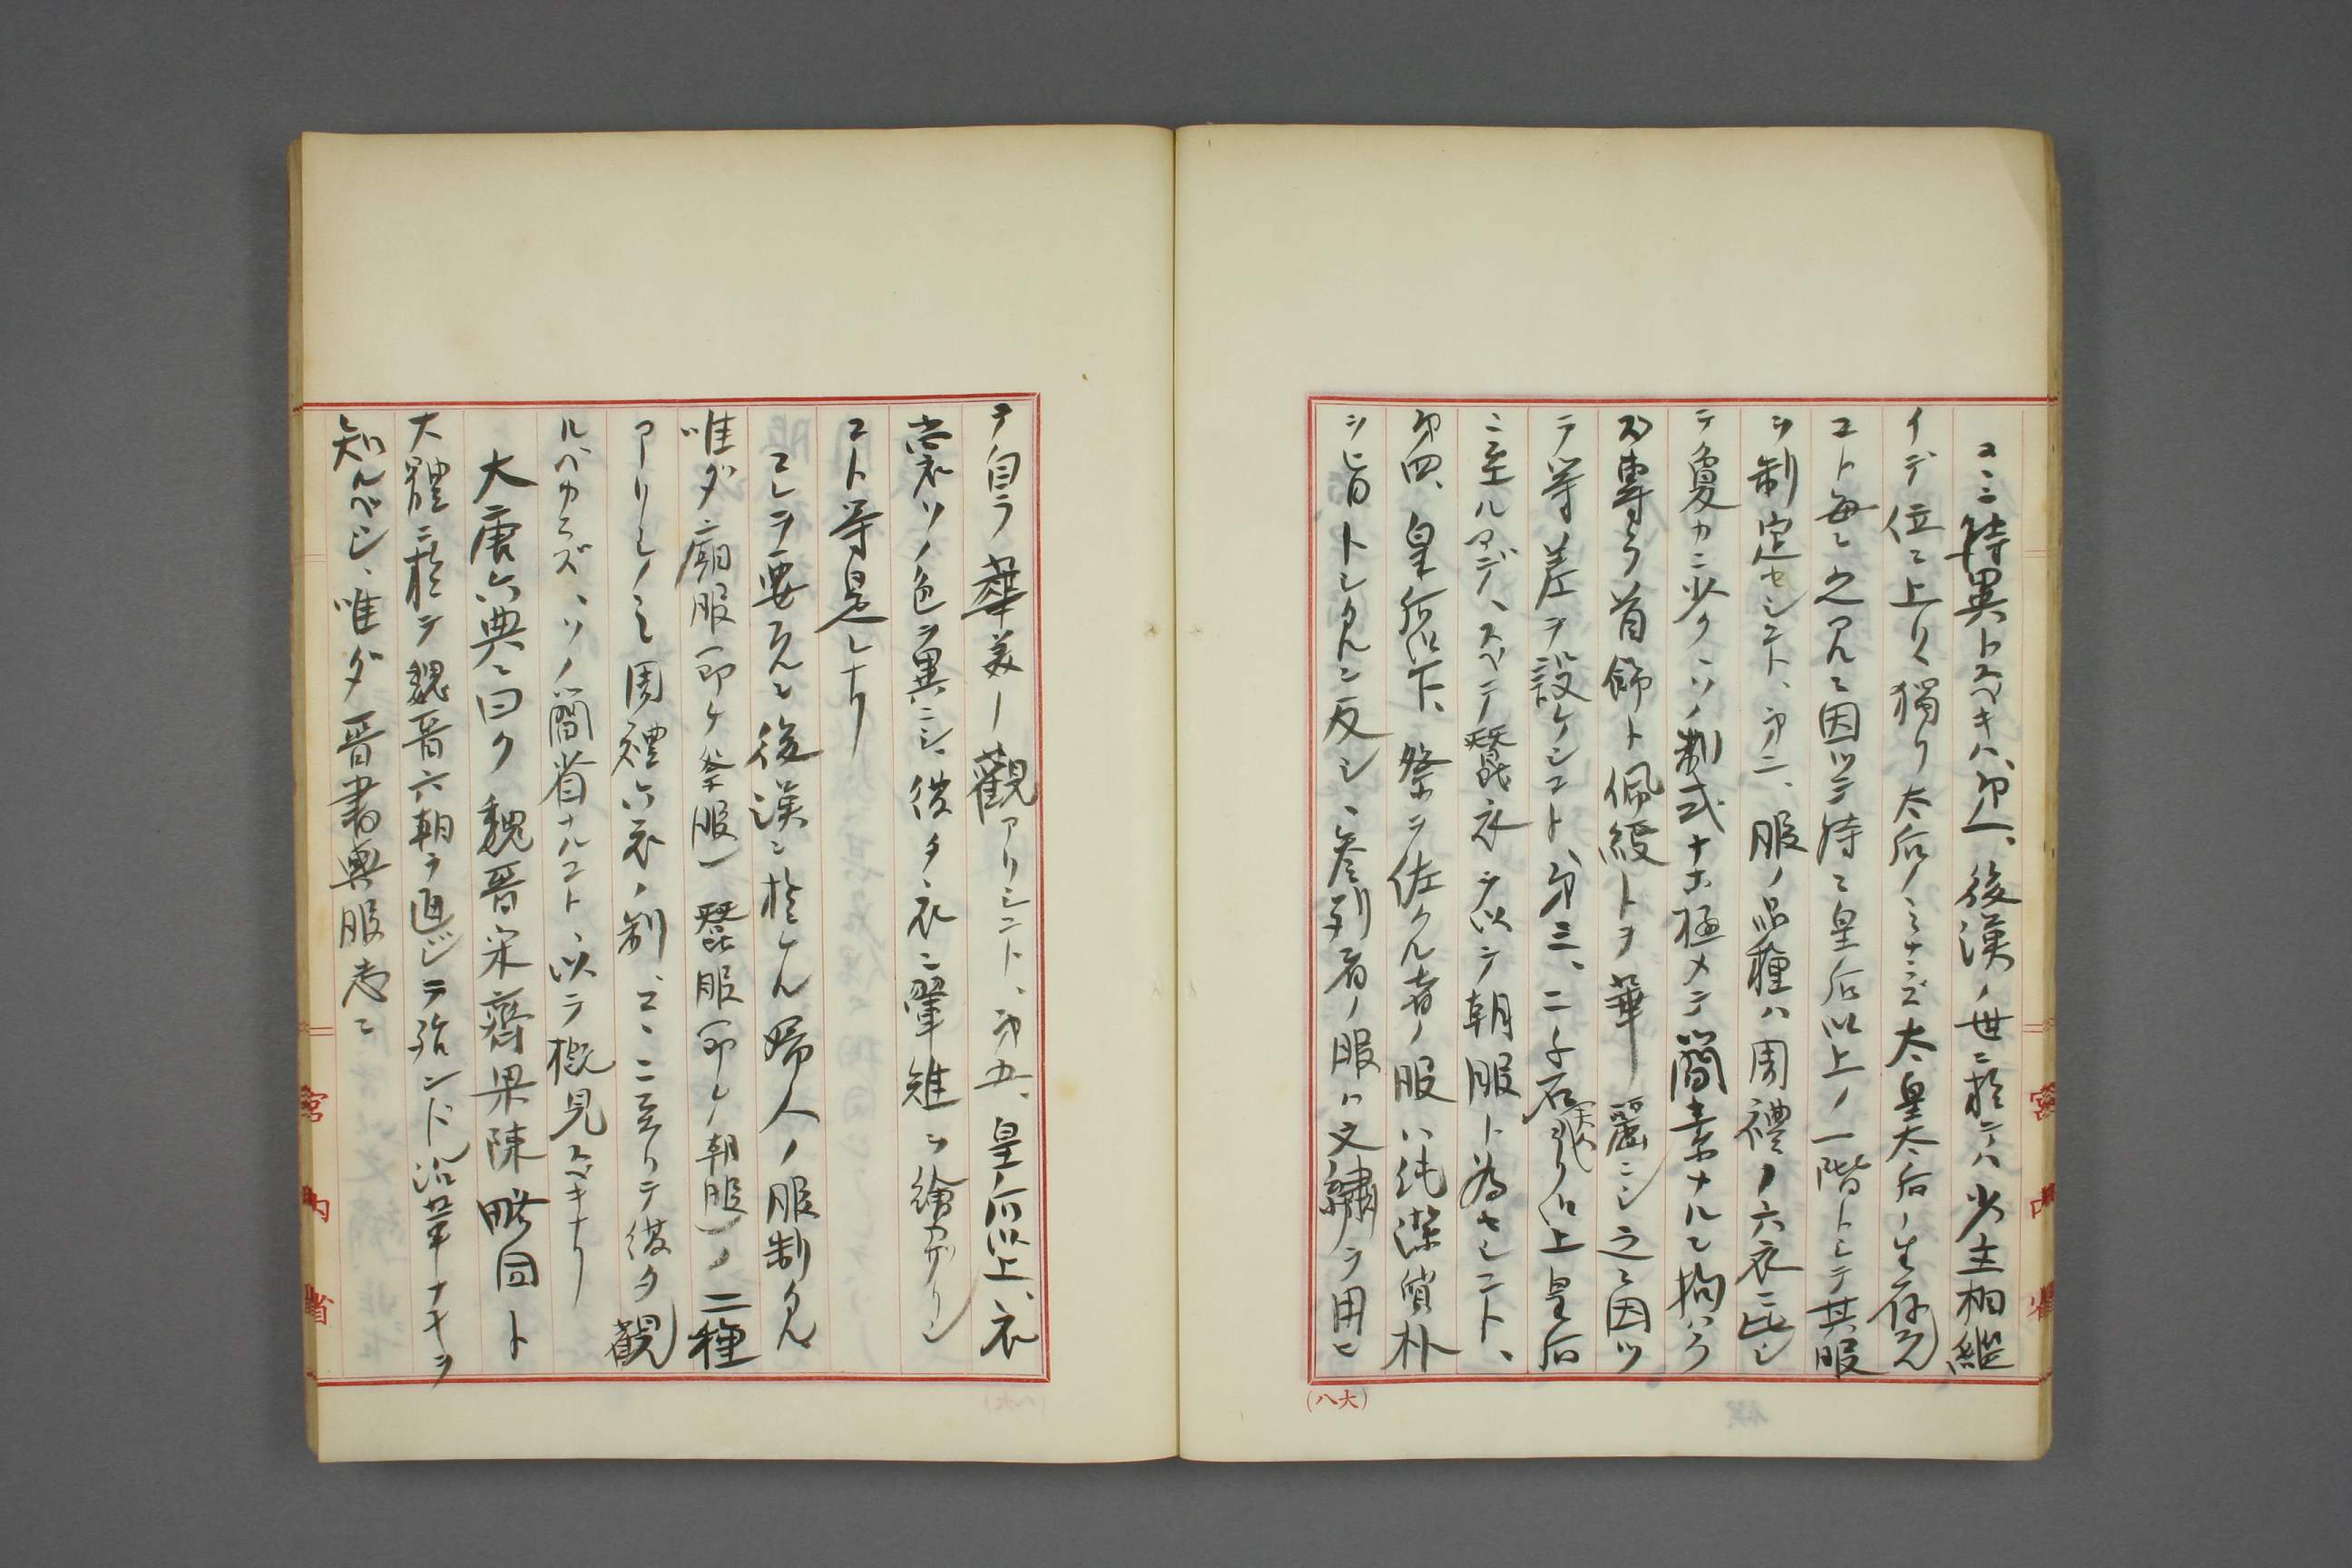 コヽニ特異トスベキハ、第一、後漢ノ世ニ於テハ少主相繼
イデ位ニ上リ、獨リ太后ノミナラズ太皇太后ノ生存スル
コト毎ニ之アルニ因ツテ特ニ皇后以上ノ一階トシテ其服
ヲ制定セシコト、第二、服ノ品種ハ周禮ノ六衣ニ比シ
テ夐カニ少ク、ソノ制式ナホ極メテ簡素ナルニ拘ハラ
ズ專ラ首飾ト佩綬トヲ華麗ニシ之ニ因ツ
テ等差ヲ設ケシコト、第三、二千石夫人ヨリ以上皇后
ニ至ルマデ、スベテ蠶衣ヲ以テ朝服ト為セシコト、
第四、皇后以下、祭ヲ佐クル者ノ服ハ純潔質朴
ヲ旨トシタルニ反シ、参列者ノ服ハ文繡ヲ用ヒ
テ自ラ華美ノ觀アリシコト、第五、皇后以上、衣
裳ソノ色ヲ異ニシ、復タ衣ニ翬雉ヲ繪カザリシ
コト等是レナリ
コレヲ要スルニ後漢ニ於ケル婦人ノ服制タル
唯ダ廟服(即ケ祭服)蠶服(即ケ朝服)ノ二種
アリシノミ周禮六衣ノ制、コヽニ至リテ復タ觀
ルベカラズ、ソノ簡省ナルコト、以テ概見スベキナリ
大唐六典ニ曰ク魏晋宋齊梁陳略同ト
大體ニ於テ魏晋六朝ヲ通ジテ殆ンド沿革ナキヲ
知ルベシ、唯ダ晋書輿服志ニ
宮内省
宮内省
(八大)